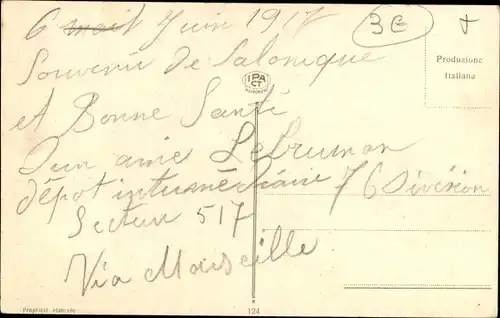 6 mait Juin 1917
3E
+
Produzione
Italiana
Souvenir de Salonique
IPA
CT
et Bonne Santé
D'un amie Lebrumon
dépot intermédiaire 76 Division
Secteur 517
Via Marseille
Proprietà riservata
124